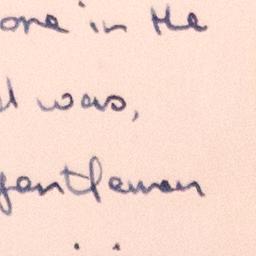 one in the
was,
gentleman